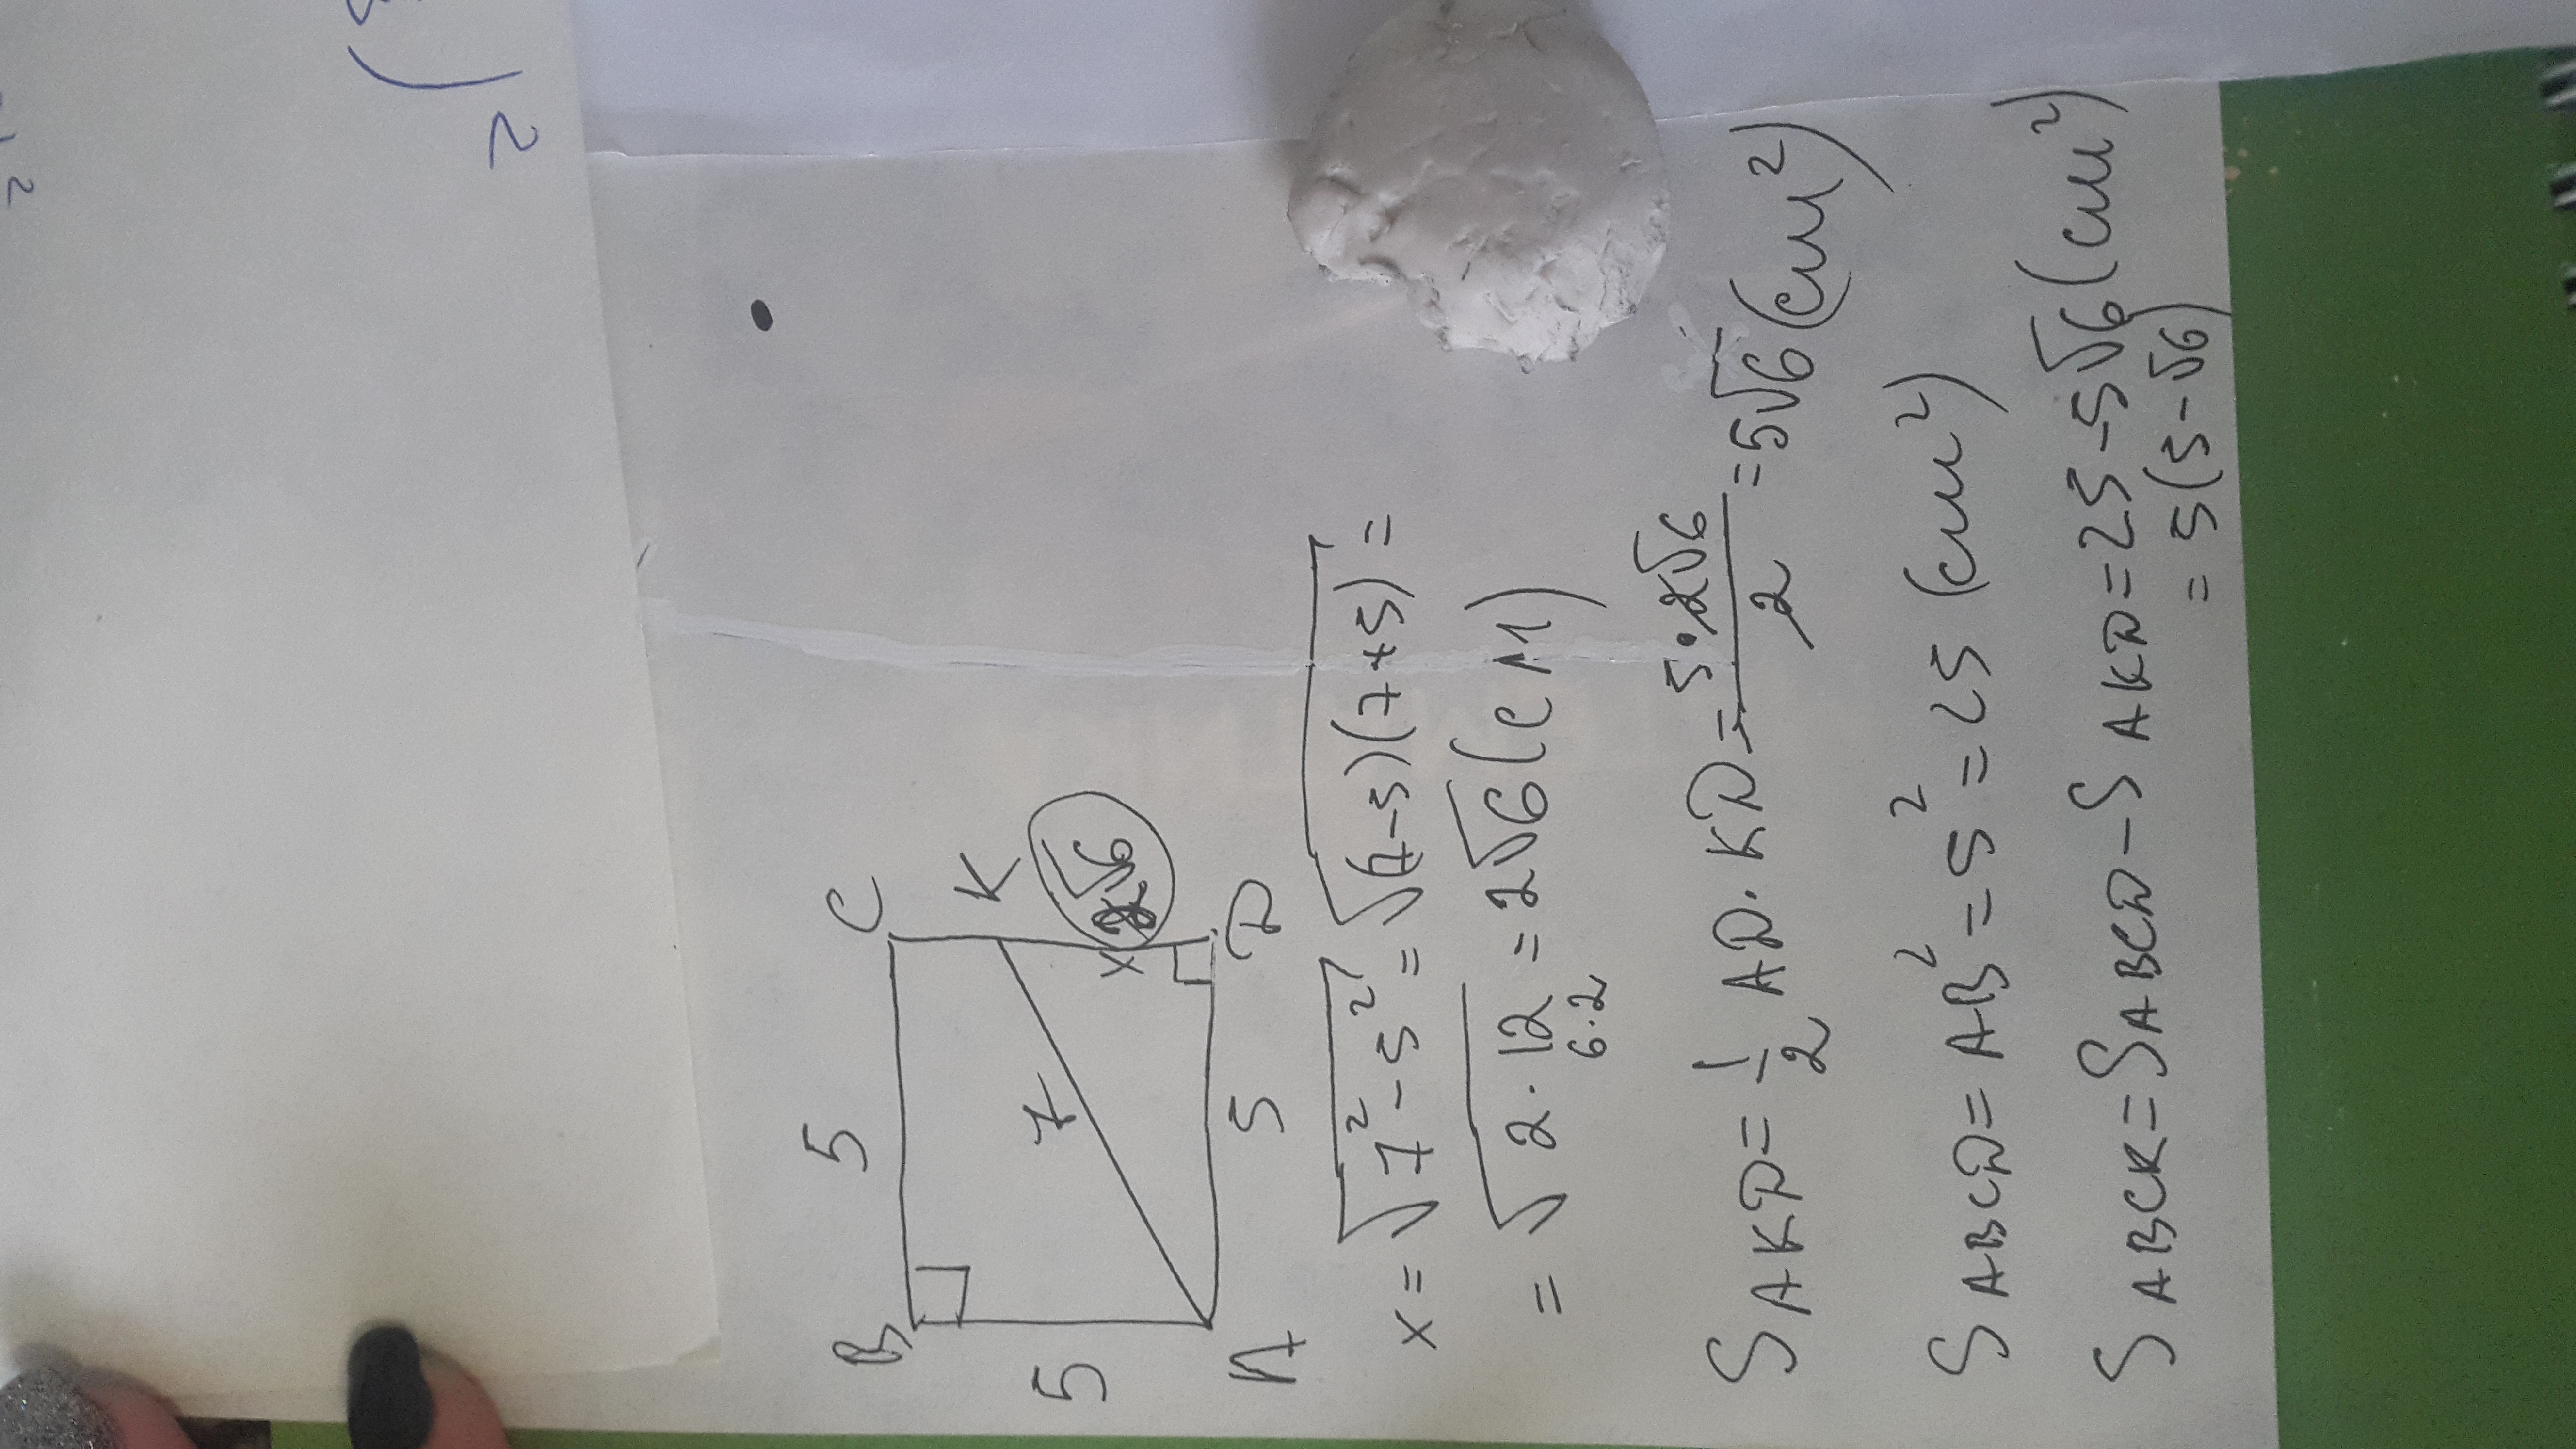 )²
2
B 5 C
K
5 7 x √6
A 5 D
x = √7² - 5² = √(7-5)(7+5) =
= √2 · 12 = 2√6 (см)
6·2
S AKD = 1/2 AD · KD = 5·2√6/2 = 5√6 (см²)
S ABCD = AB² = 5² = 25 (см²)
S ABCK = S ABCD - S AKD = 25 - 5√6 (см²)
= 5(5-√6)